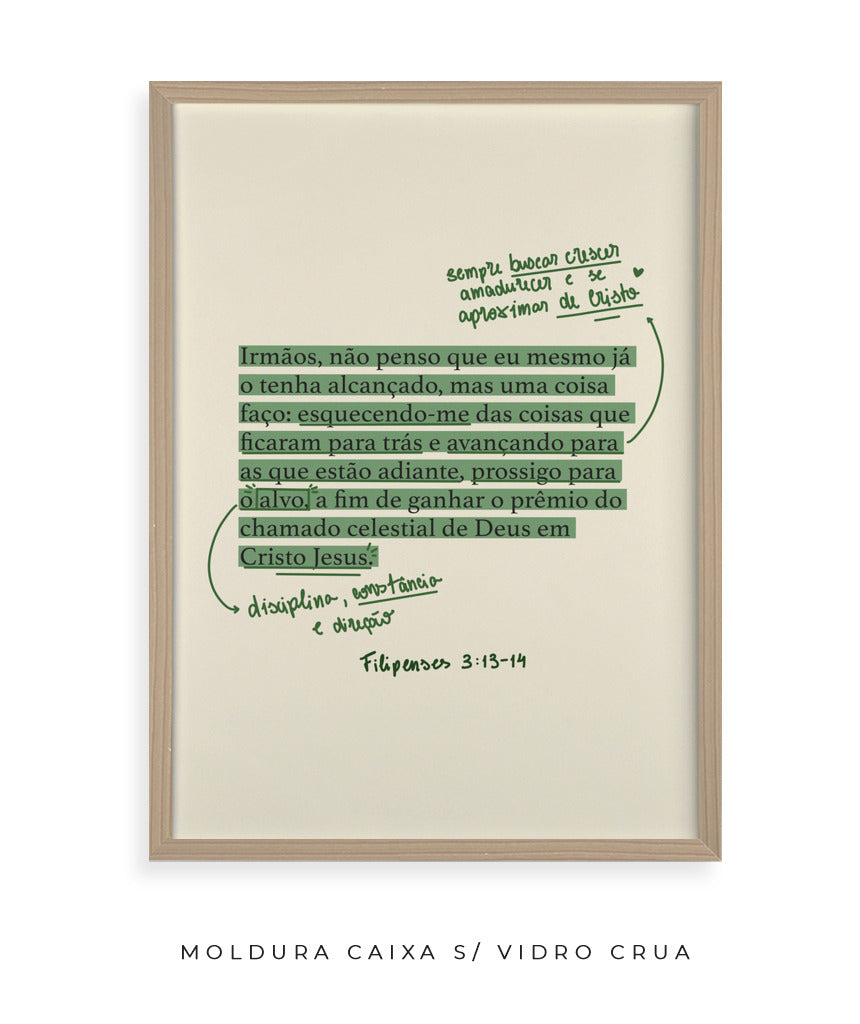 sempre buscar crescer
amadurecer e se
aproximar de Cristo
Irmãos, não penso que eu mesmo já
o tenha alcançado, mas uma coisa
faço: esquecendo-me das coisas que
ficaram para trás e avançando para
as que estão adiante, prossigo para
o alvo, a fim de ganhar o prêmio do
chamado celestial de Deus em
Cristo Jesus.
disciplina, constância
e direção
Filipenses 3:13-14
MOLDURA CAIXA S/ VIDRO CRUA